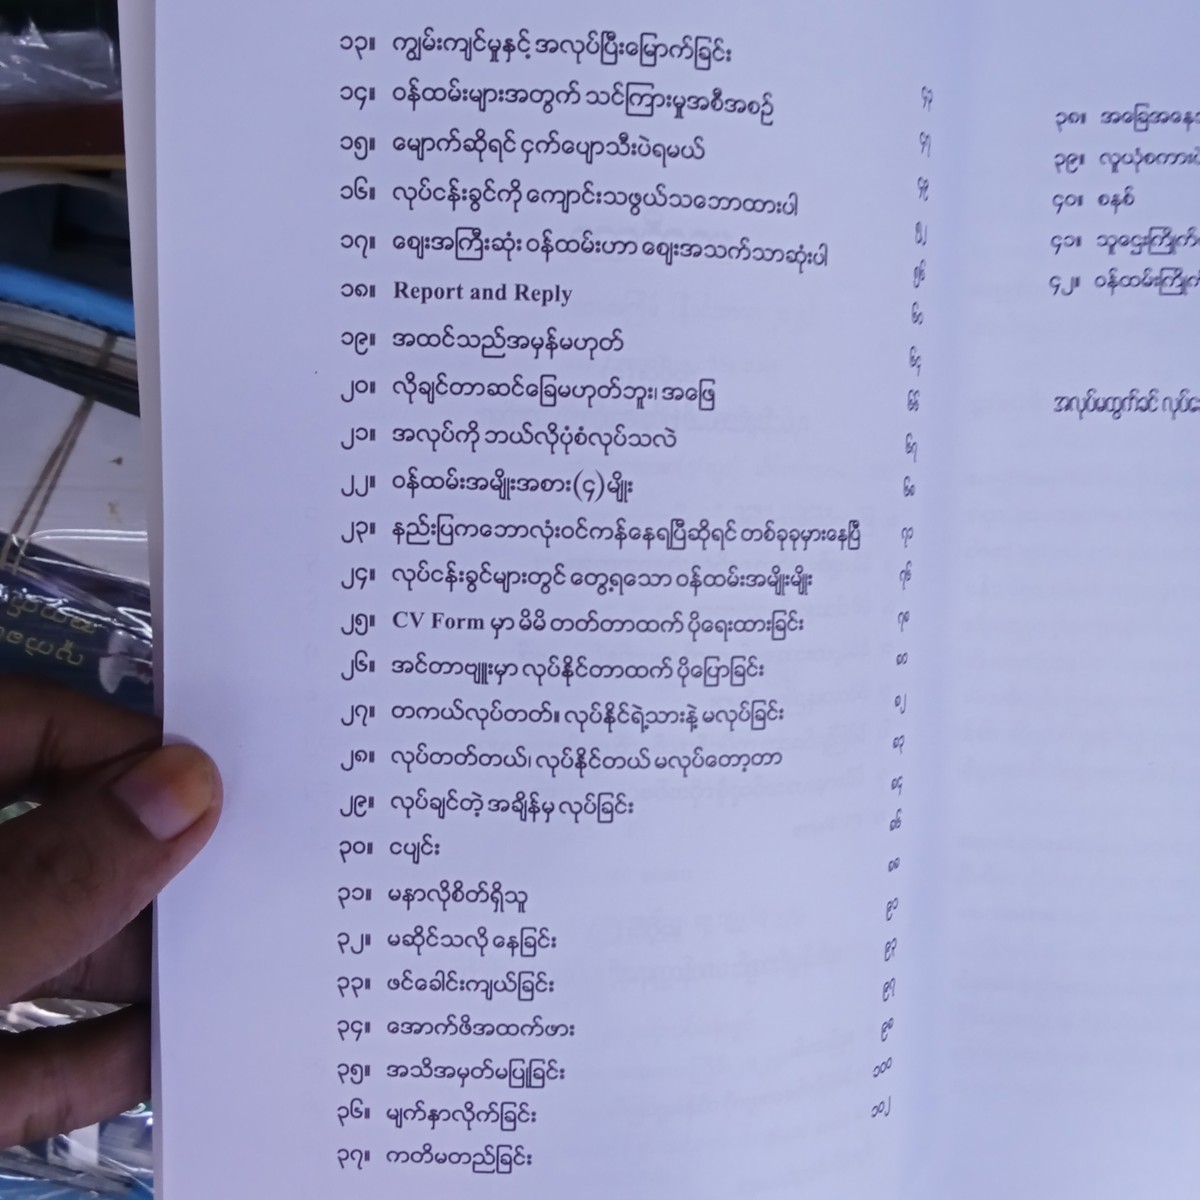 ၁၃။ ကျွမ်းကျင်မှုနှင့် အလုပ်ပြီးမြောက်ခြင်း
၁၄။ ဝန်ထမ်းများအတွက် သင်ကြားမှုအစီအစဉ် ၄၃
၁၅။ မျောက်ဆိုရင် ငှက်ပျောသီးပဲရမယ် ၄၇
၁၆။ လုပ်ငန်းခွင်ကို ကျောင်းသဖွယ်သဘောထားပါ ၄၉
၁၇။ ဈေးအကြီးဆုံး ဝန်ထမ်းဟာ ဈေးအသက်သာဆုံးပါ ၅၂
၁၈။ Report and Reply ၅၆
၁၉။ အထင်သည်အမှန်မဟုတ် ၆၁
၂၀။ လိုချင်တာဆင်ခြေမဟုတ်ဘူး၊ အဖြေ ၆၄
၂၁။ အလုပ်ကို ဘယ်လိုပုံစံလုပ်သလဲ ၆၆
၂၂။ ဝန်ထမ်းအမျိုးအစား(၄)မျိုး ၆၇
၂၃။ နည်းပြကဘောလုံးဝင်ကန်နေရပြီဆိုရင် တစ်ခုခုမှားနေပြီ ၇၁
၂၄။ လုပ်ငန်းခွင်များတွင် တွေ့ရသော ဝန်ထမ်းအမျိုးမျိုး ၇၆
၂၅။ CV Form မှာ မိမိ တတ်တာထက် ပိုရေးထားခြင်း ၇၈
၂၆။ အင်တာဗျူးမှာ လုပ်နိုင်တာထက် ပိုပြောခြင်း ၈၀
၂၇။ တကယ်လုပ်တတ်။ လုပ်နိုင်ရဲ့သားနဲ့ မလုပ်ခြင်း ၈၂
၂၈။ လုပ်တတ်တယ်၊ လုပ်နိုင်တယ် မလုပ်တော့တာ ၈၃
၂၉။ လုပ်ချင်တဲ့ အချိန်မှ လုပ်ခြင်း ၈၄
၃၀။ ငပျင်း ၈၆
၃၁။ မနာလိုစိတ်ရှိသူ ၈၈
၃၂။ မဆိုင်သလို နေခြင်း ၉၁
၃၃။ ဖင်ခေါင်းကျယ်ခြင်း ၉၃
၃၄။ အောက်ဖိအထက်ဖား ၉၇
၃၅။ အသိအမှတ်မပြုခြင်း ၁၀၀
၃၆။ မျက်နှာလိုက်ခြင်း ၁၀၂
၃၇။ ကတိမတည်ခြင်း
၃၈။
၃၉။ လူယုံစကား
၄၀။ စနစ်
၄၁။ သူဌေးကြိုက်
၄၂။ ဝန်ထမ်းကြိုက်
အလုပ်မထွက်ခင်